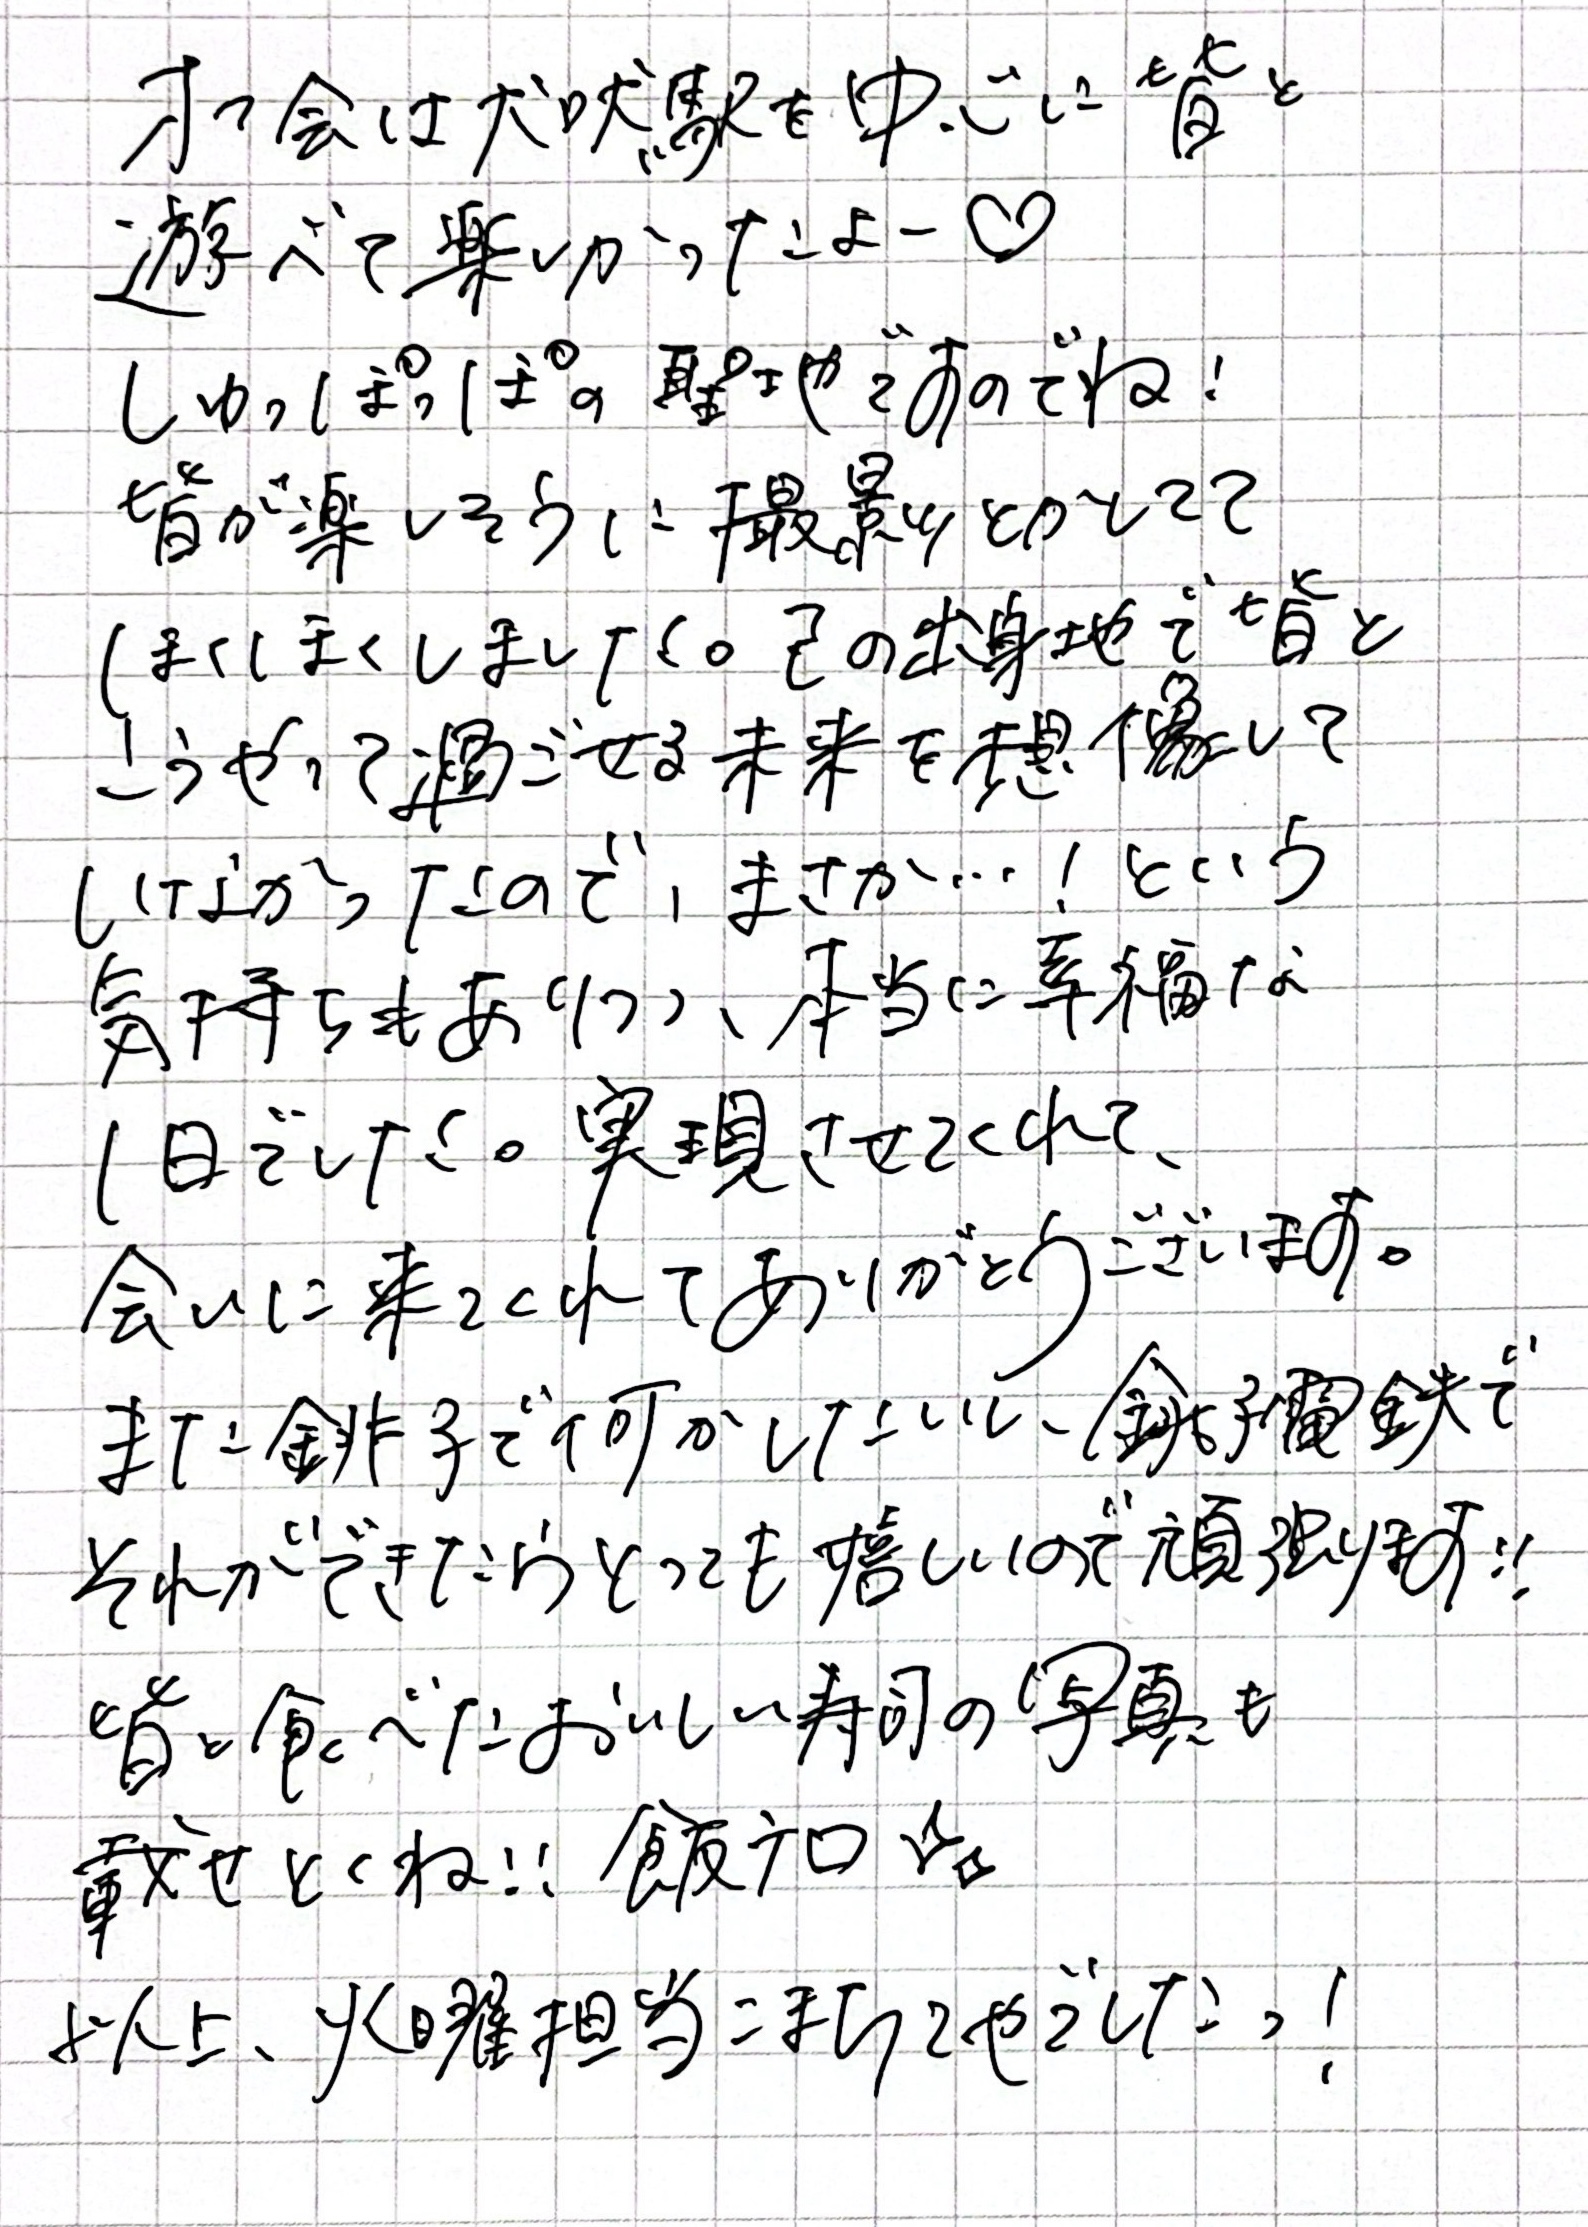 オフ会は犬吠駅を中心に皆と
遊べて楽しかったよー♡
しゅっぽっぽの聖地ですのでね！
皆が楽しそうに撮影とかしてて
ほくほくしました。己の出身地で皆と
こうやって過ごせる未来を想像して
いなかったので、まさか…！という
気持ちもありつつ、本当に幸福な
1日でした。実現させてくれて、
会いに来てくれてありがとうございます。
また銚子で何かしたいし、銚子電鉄で
それができたらとっても嬉しいので頑張ります!!
皆と食べたおいしい寿司の写真も
載せとくね!! 飯テロ☆。
以上、火曜担当こまちてやでしたっ！